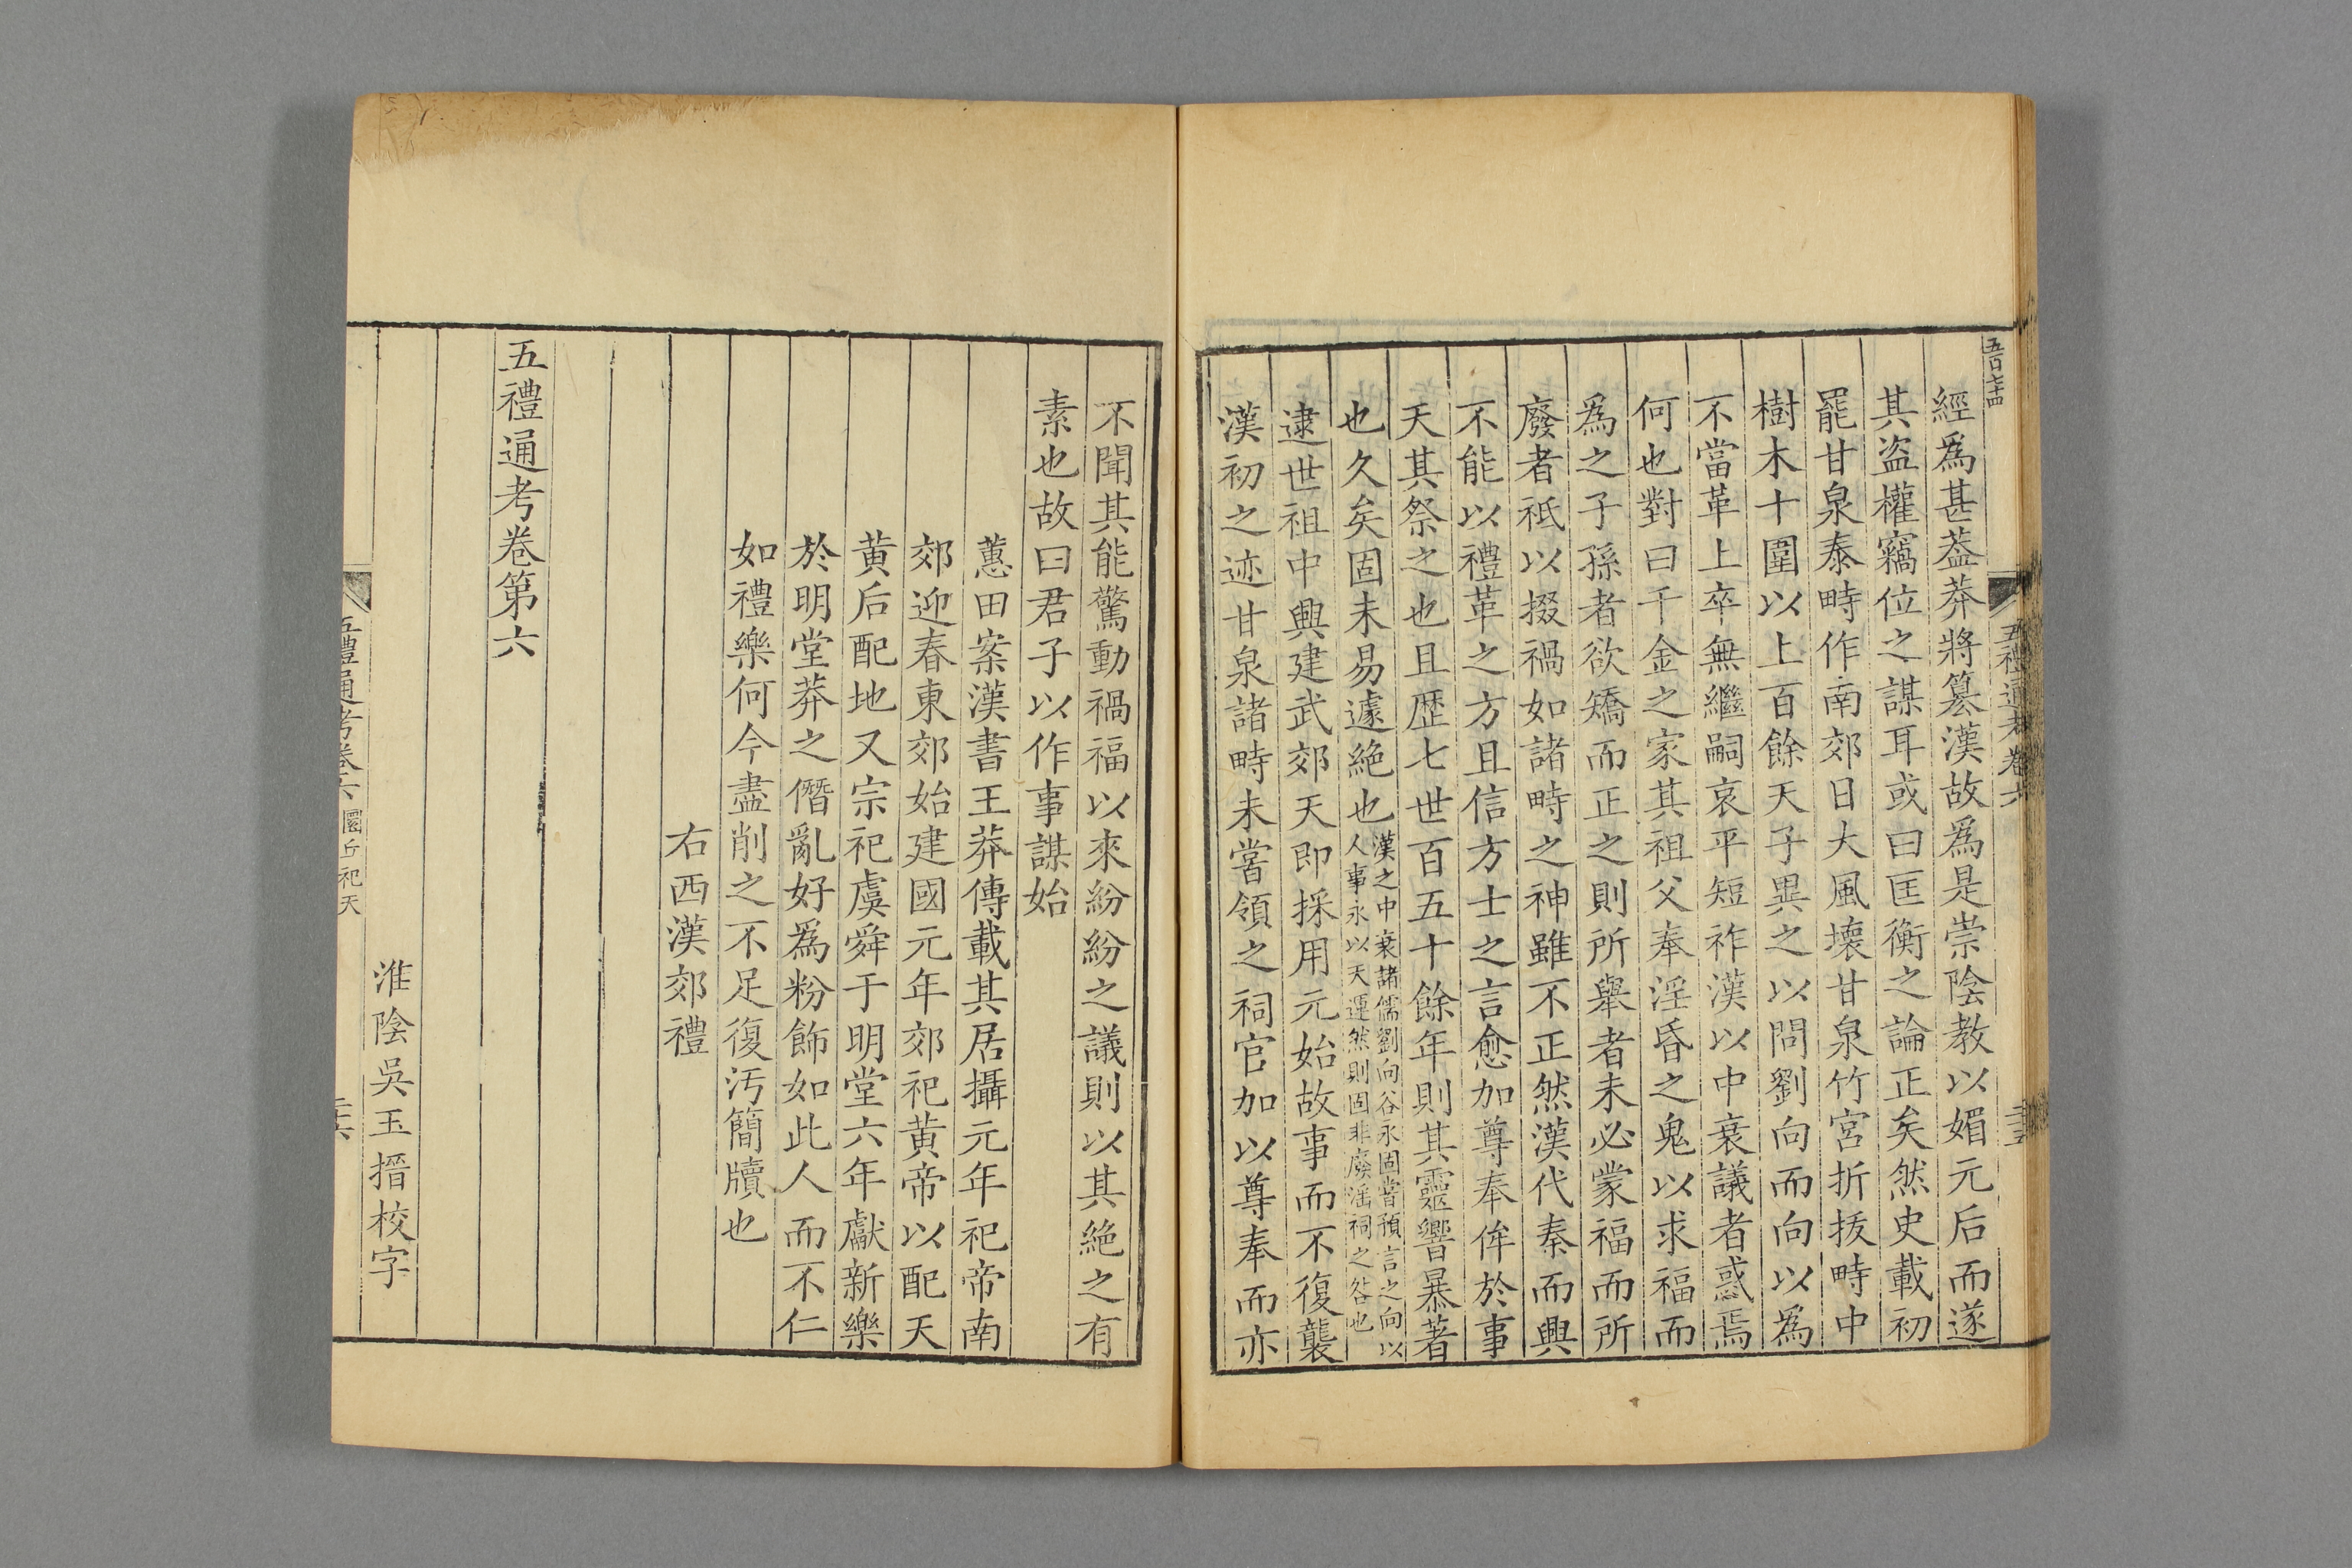 五百七十四
五禮通考卷六
二十五
經爲甚葢莽將篡漢故爲是崇陰教以媚元后而遂
其盜權竊位之謀耳或曰匡衡之論正矣然史載初
罷甘泉泰畤作南郊日大風壞甘泉竹宮折拔畤中
樹木十圍以上百餘天子異之以問劉向而向以爲
不當革上卒無繼嗣哀平短祚漢以中衰議者惑焉
何也對曰千金之家其祖父奉淫昏之鬼以求福而
爲之子孫者欲矯而正之則所舉者未必蒙福而所
廢者祇以掇禍如諸畤之神雖不正然漢代秦而興
不能以禮革之方且信方士之言愈加尊奉侔於事
天其祭之也且歷七世百五十餘年則其靈響暴著
也久矣固未易遽絶也漢之中衰諸儒劉向谷永固嘗預言之向以
人事永以天運然則固非廢淫祠之咎也
逮世祖中興建武郊天即採用元始故事而不復襲
漢初之迹甘泉諸畤未嘗領之祠官加以尊奉而亦
不聞其能驚動禍福以來紛紛之議則以其絶之有
素也故曰君子以作事謀始
蕙田案漢書王莽傳載其居攝元年祀帝南
郊迎春東郊始建國元年郊祀黄帝以配天
黄后配地又宗祀虞舜于明堂六年獻新樂
於明堂莽之僭亂好爲粉飾如此人而不仁
如禮樂何今盡削之不足復汚簡牘也
右西漢郊禮
五禮通考卷第六
淮陰吳玉搢校字
五禮通考卷六 圜丘祀天
二十六